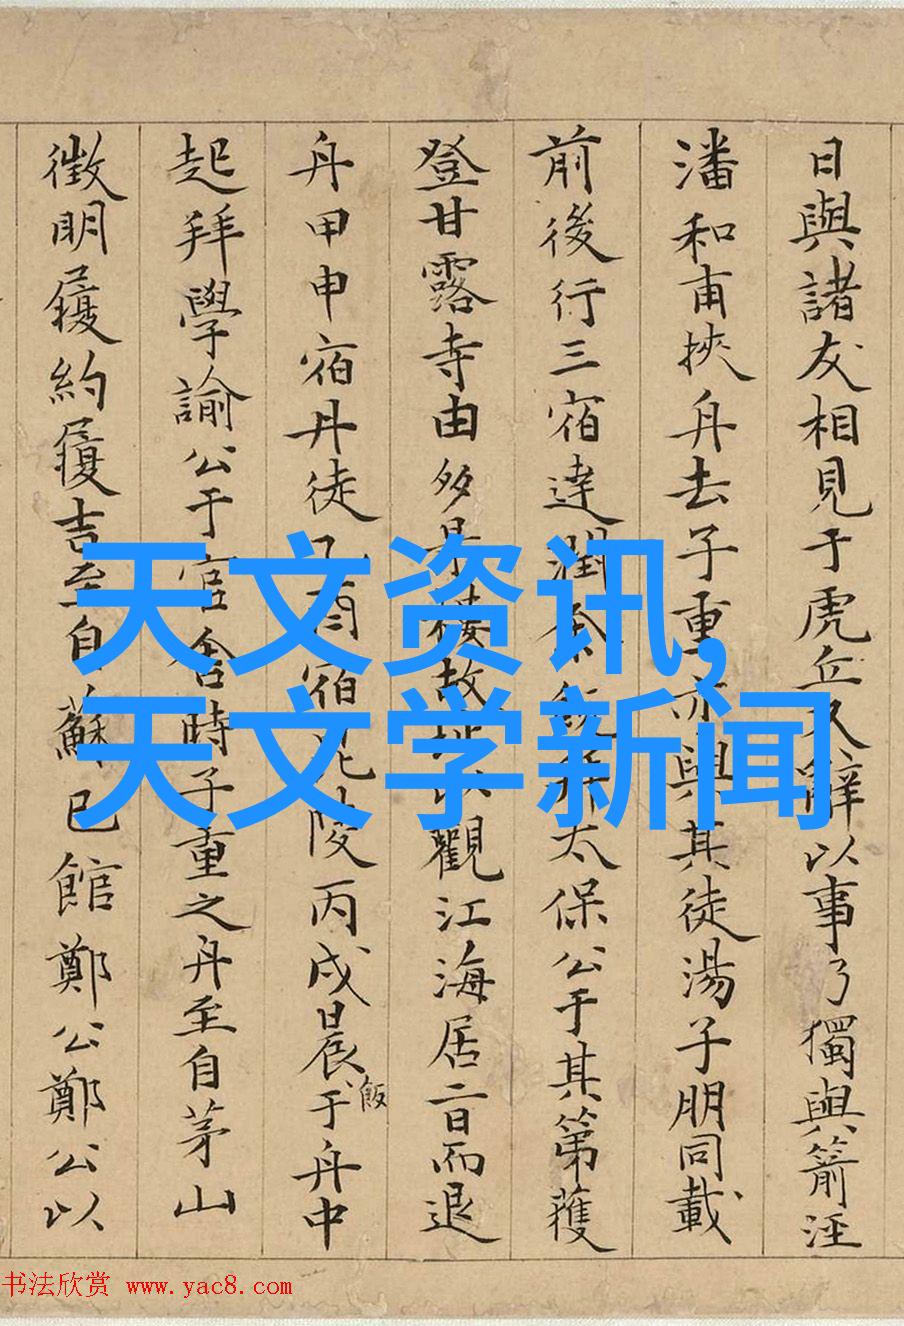 日與諸友相見于虎丘又辭以事乃獨與箭涇
潘和甫挾舟去子重亦與其徒湯子朋同載
前後行三宿達潤太保公于其第獲
登甘露寺由多景樓故址以觀江海居二日而退
舟甲申宿丹徒乙酉宿毘陵丙戌晨飯于舟中
起拜學諭公于官舍時子重之舟至自茅山
徵明履約履吉至自蘇已館鄭公鄭公以
天文资讯,
天文学新闻
书法欣赏 www.yac8.com